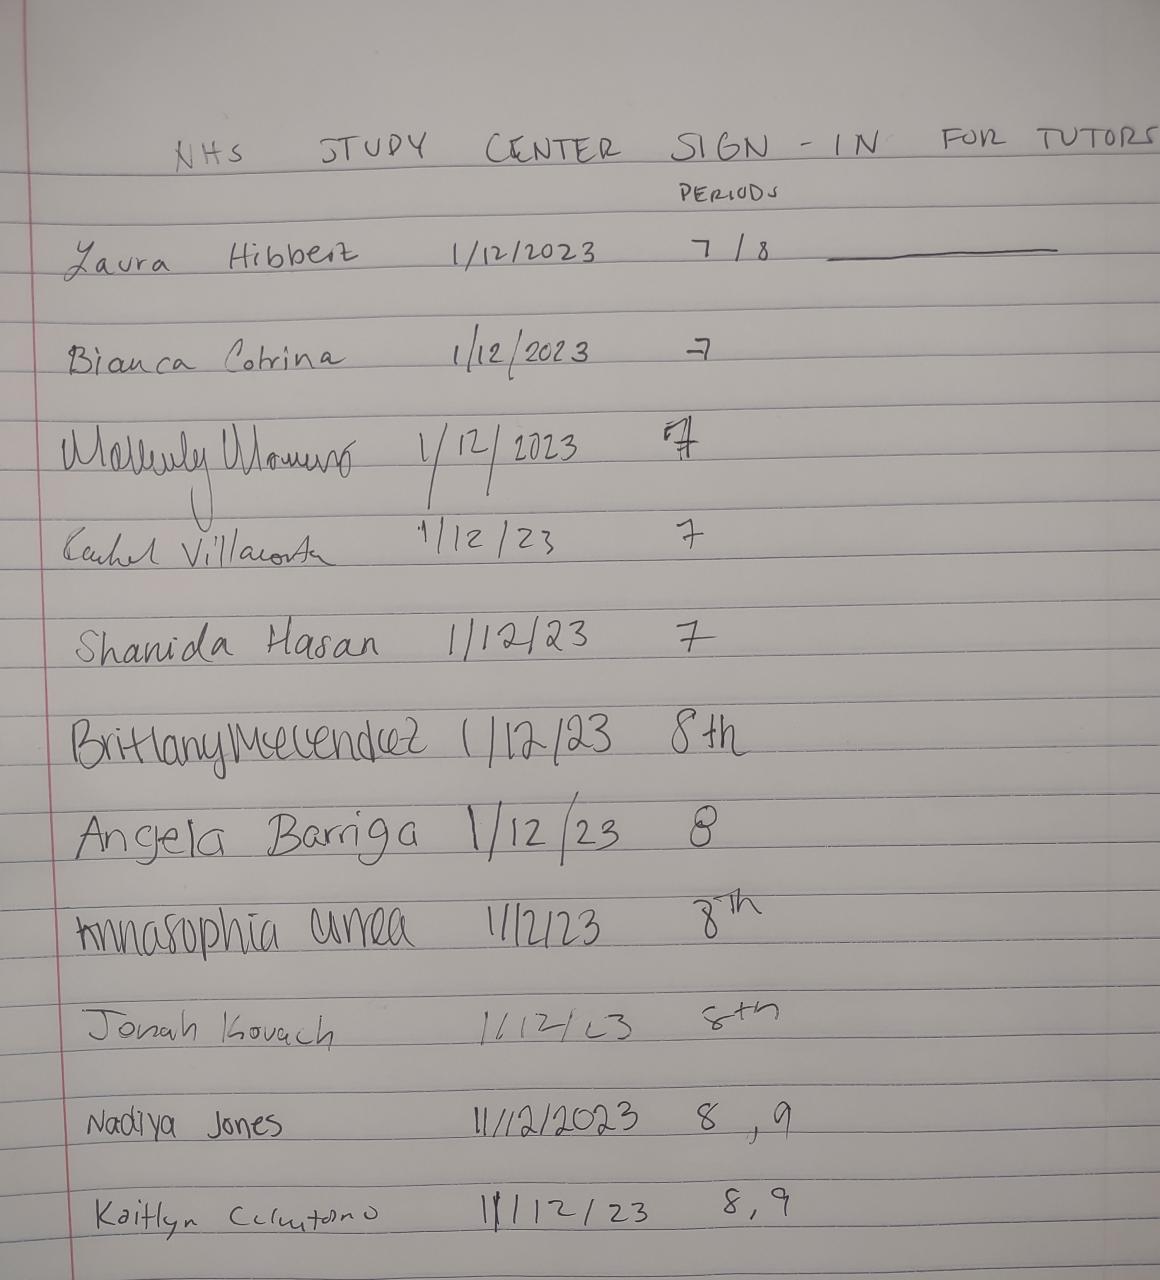 NHS STUDY CENTER SIGN-IN FOR TUTORS
PERIODS
Laura Hibbert 1/12/2023 7/8
Bianca Cotrina 1/12/2023 7
1/12/2023 7
Rachel Villacorta 1/12/23 7
Shanida Hasan 1/12/23 7
Brittany Melendez 1/12/23 8th
Angela Barriga 1/12/23 8
Annasophia Urrea 1/12/23 8th
Jonah Kovach 1/12/23 8th
Nadiya Jones 1/12/2023 8,9
Kaitlyn 1/12/23 8,9